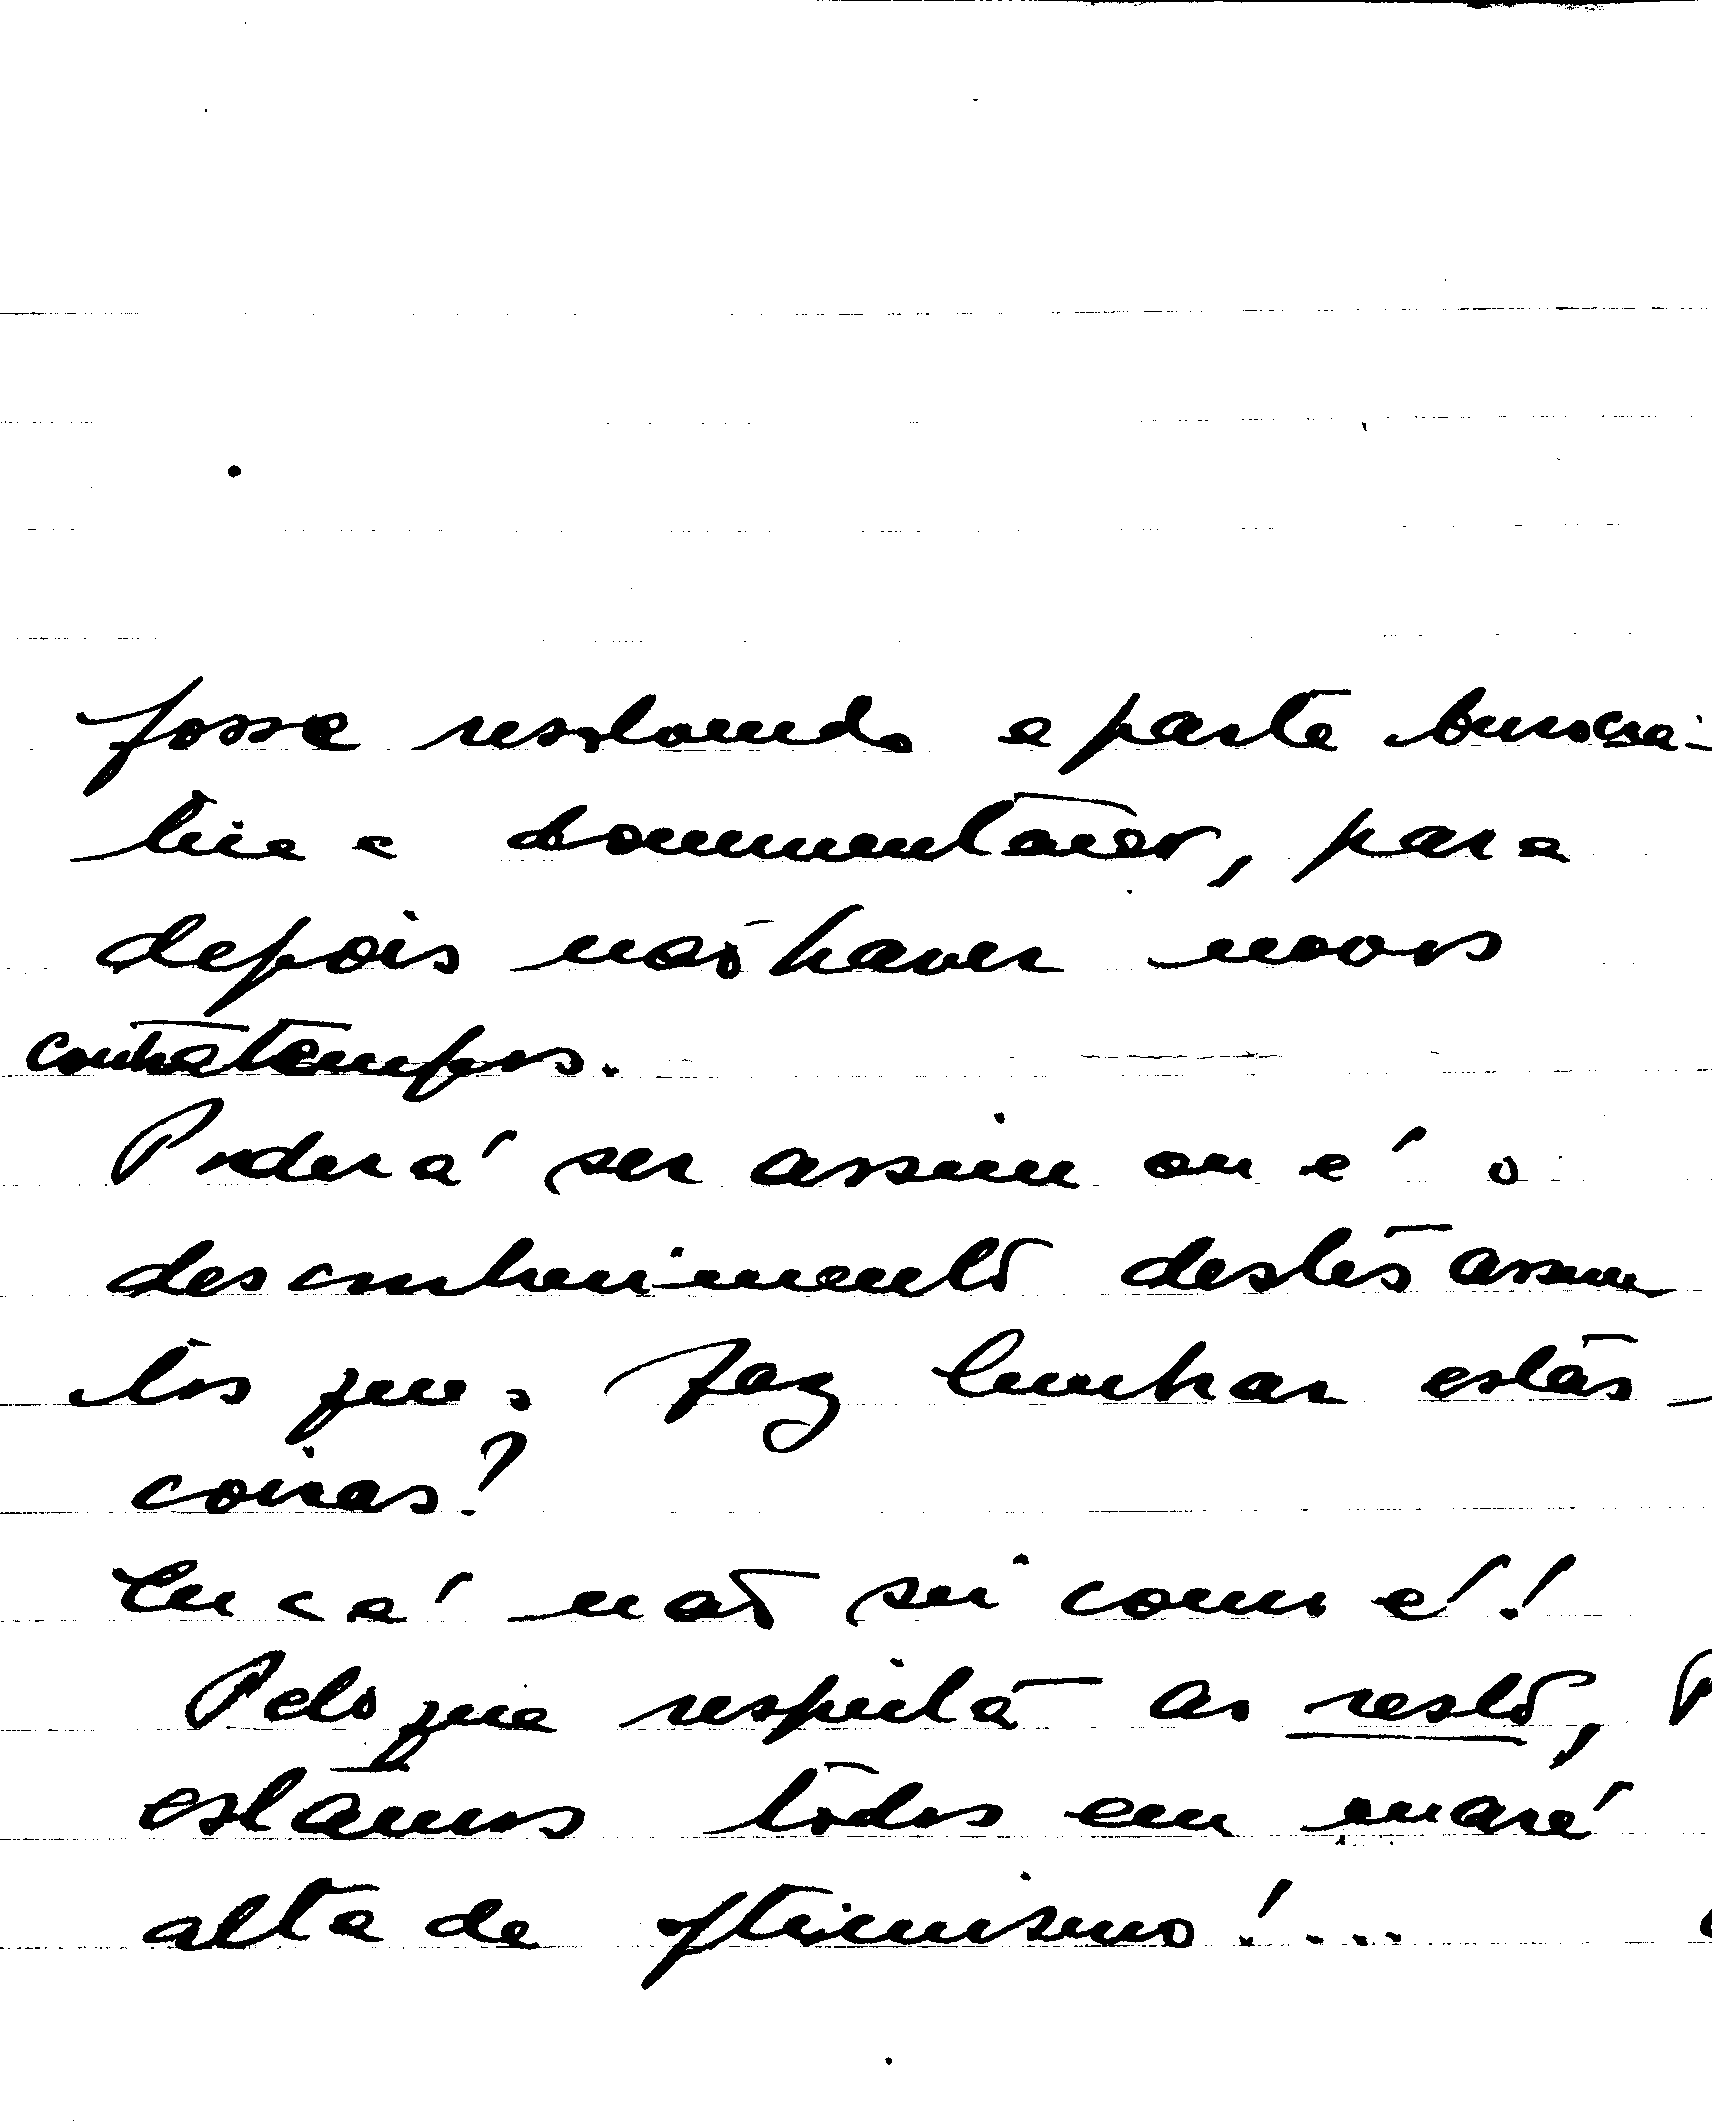 fosse resolvendo a parte burocrá-
tica e documentação, para
depois não haver novos
contratempos.
Poderá ser assim ou é o
desconhecimento destes assun
tos que faz lembrar estas
coisas?
Eu cá não sei como é!
Pelo que respeita ao resto,
estamos todos em maré
alta de optimismo!...